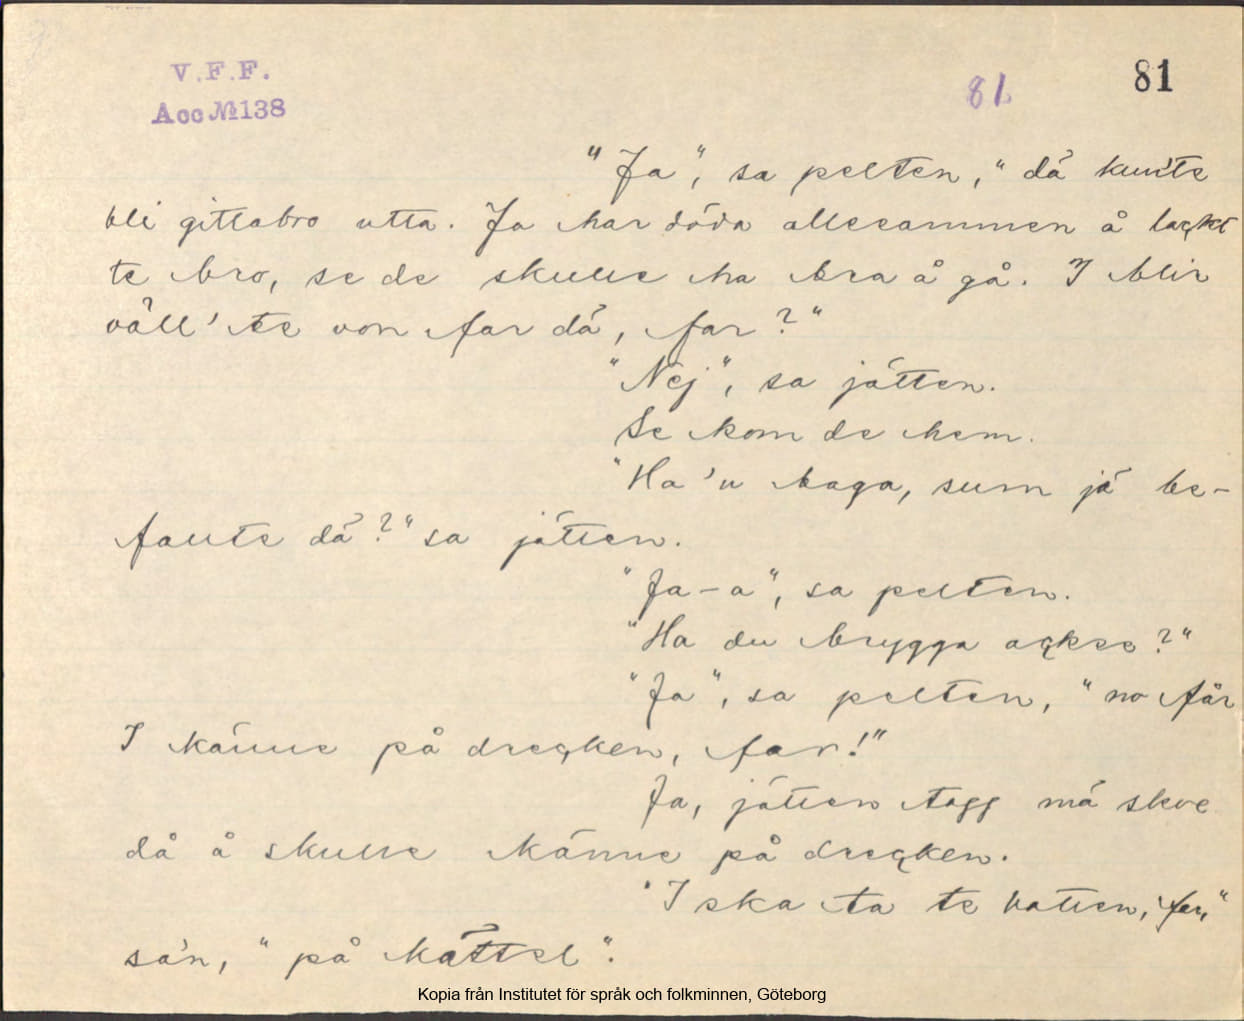 V.F.F.
Acc №138
81.
81
"Ja", sa pelten, "dá kun'te
bli gittabro utta. Ja har döda allesammen å lagkt
te bro, se de skulle ha bra å gå. I blir
väll'te von far dá, far?"
"Nej", sa jätten.
Se kom de hem.
"Ha'u baga, sum já be-
fallte dá?" sa jätten.
"Ja-a", sa pelten.
"Ha du brygga ogkse?"
"Ja", sa pelten, "no får
I känne på dregken, far!"
Ja, jätten togg má skve
då å skulle känne på dregken.
"I ska ta te botten, far,"
sa'n, "på kättel".
Kopia från Institutet för språk och folkminnen, Göteborg